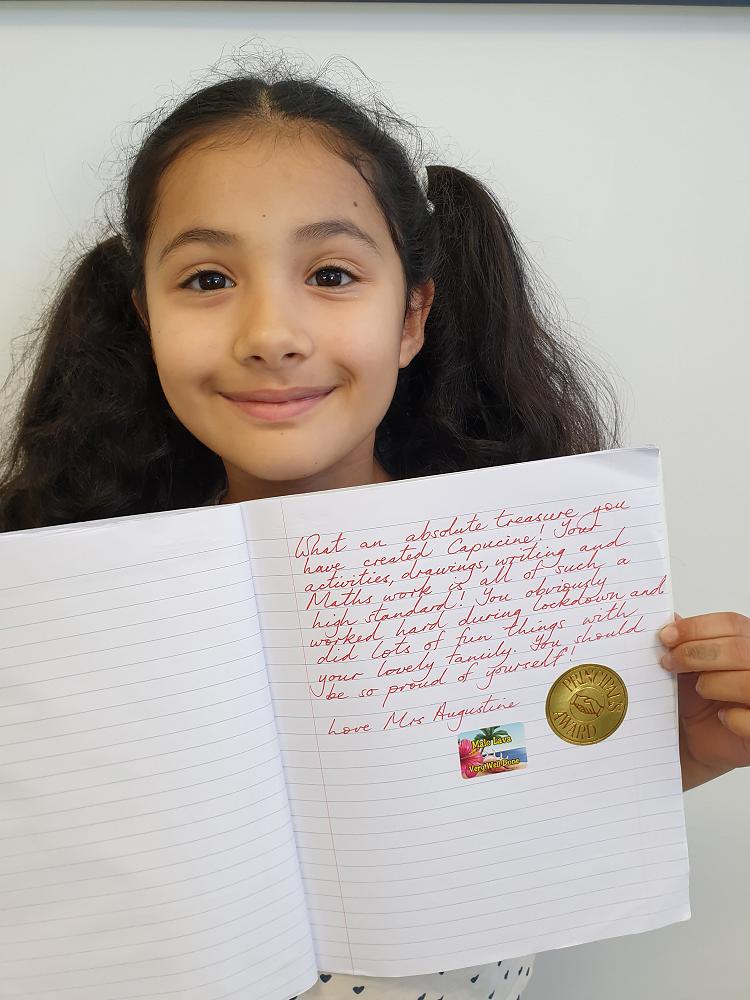 What an absolute treasure you
have created Capucine! Your
activities, drawings, writing and
Maths work is all of such a
high standard! You obviously
worked hard during lockdown and
did lots of fun things with
your lovely family. You should
be so proud of yourself!
Love Mrs Augustine
PRINCIPAL'S
AWARD
Mālō Lava
Very Well Done